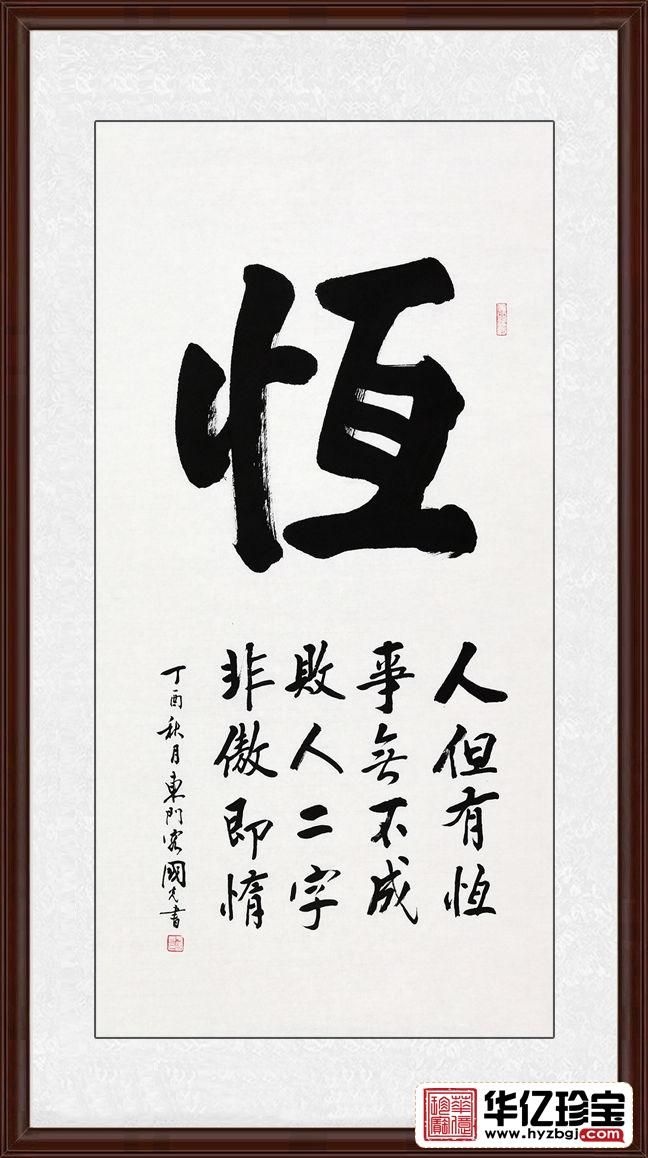 恆
人但有恆
事無不成
敗人二字
非傲即惰
丁酉秋月東門客國光書
华亿珍宝
www.hyzbgj.com